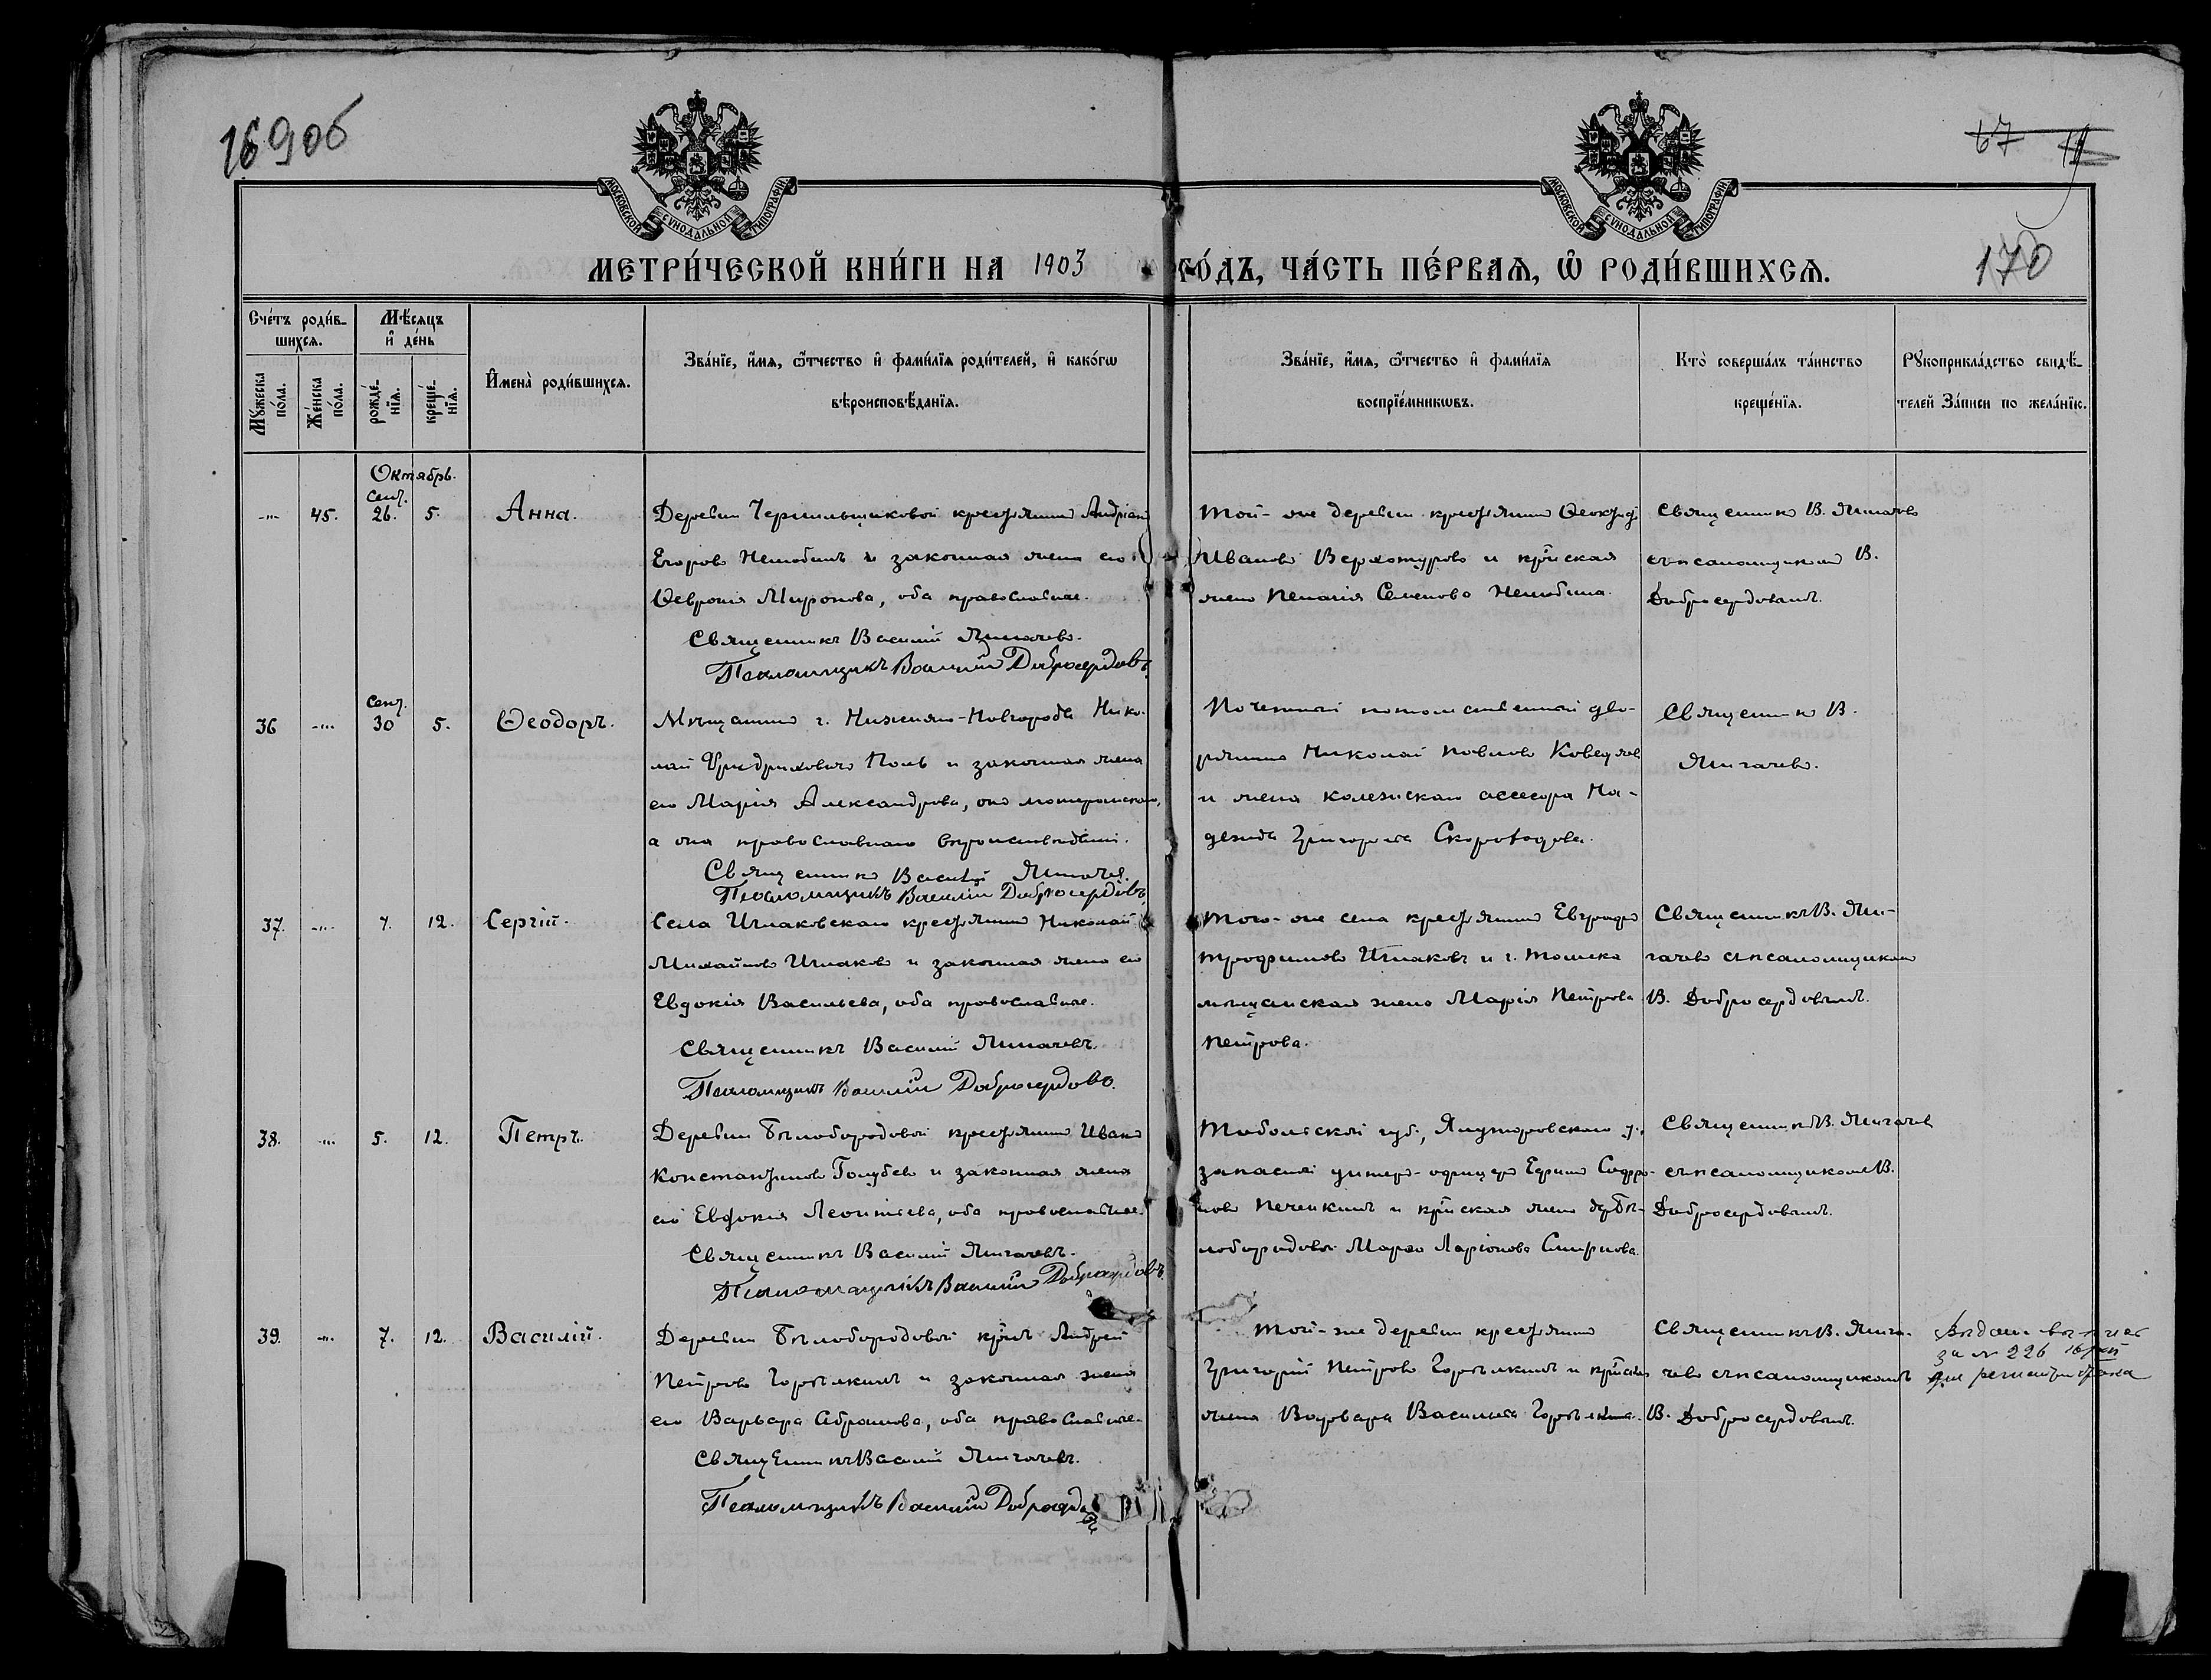 169об
67
170
МОСКОВСКОЙ СѴНОДАЛЬНОЙ ТИПОГРАФІИ.
МОСКОВСКОЙ СѴНОДАЛЬНОЙ ТИПОГРАФІИ.
МЕТРИ́ЧЕСКОЙ КНИ́ГИ НА 1903 ГО́ДЪ, ЧА́СТЬ ПЕ́РВАѦ, Ѽ РОДИ́ВШИХСѦ.
Сче́тъ роди́в-
шихсѧ.
Мѣ́сѧцъ
и҆ де́нь
Мꙋ́жеска
по́ла.
Же́нска
по́ла.
рожде́-
нїѧ.
креще́-
нїѧ.
И҆мена̀ роди́вшихсѧ.
Зва́нїе, и҆́мѧ, ѻ҆́тчество и҆ фами́лїѧ роди́телей, и҆ како́гѡ
вѣроисповѣ́данїѧ.
Зва́нїе, и҆́мѧ, ѻ҆́тчество и҆ фами́лїѧ
воспрїе́мникѡвъ.
Кто̀ соверша́лъ та́инство
креще́нїѧ.
Рꙋкоприкла́дство свидѣ́-
телей за́писи по жела́нїю.
Октябрь.
Сент.
45. 26. 5. Анна.
Деревни Чернильщиковой крестьянинъ Андріанъ
Егоровъ Нелюбинъ и законная жена его
Ѳевронія Миронова, оба православные.
Священникъ Василій Лигачевъ.
Псаломщикъ Василій Добросердовъ.
Той-же деревни крестьянинъ
Ивановъ Верхотуровъ и кр-нская
жена Пелагія Семенова Нелюбина.
Священникъ В. Лигачевъ
съ псаломщикомъ В.
Добросердовымъ.
Сент.
36 30 5. Ѳеодоръ.
Мѣщанинъ г. Нижняго-Новгорода Нико-
лай Фридриховичъ Поль и законная жена
его Марія Александрова, онъ лютеранскаго,
а она православнаго вѣроисповѣданія.
Священникъ Василій Лигачевъ.
Псаломщикъ Василій Добросердовъ.
потомственный дво-
рянинъ Николай Павловъ
и жена колежскаго ассесора На-
дежда Григорьева Скороходова.
Священникъ В.
Лигачевъ.
37. 7. 12. Сергій.
Села Ишлаковскаго крестьянинъ Николай
Михайловъ Ишлаковъ и законная жена его
Евдокія Васильева, оба православные.
Священникъ Василій Лигачевъ.
Псаломщикъ Василій Добросердовъ.
Того-же села крестьянинъ Евграфъ
Трофимовъ Ишлаковъ и г. Томска
мѣщанская жена Марія Петрова
Петрова.
Священникъ В. Ли-
гачевъ съ псаломщикомъ
В. Добросердовымъ.
38. 5. 12. Петръ.
Деревни Бѣлобородовой крестьянинъ Иванъ
Константиновъ Голубевъ и законная жена
его Евдокія Леонтьева, оба православные.
Священникъ Василій Лигачевъ.
Псаломщикъ Василій Добросердовъ.
Тобольской губ., Ялуторовскаго у.,
запасный унтеръ-офицеръ Ефимъ Софро-
новъ Печенкинъ и кр-нская жена дер. Бѣ-
лобородовой Марѳа Ларіонова Смирнова.
Священникъ В. Лигачевъ
съ псаломщикомъ В.
Добросердовымъ.
39. 7. 12. Василій.
Деревни Бѣлобородовой кр-нъ Андрей
Петровъ Горѣлкинъ и законная жена
его Варвара Абрамова, оба православные.
Священникъ Василій Лигачевъ.
Псаломщикъ Василій
Той-же деревни крестьянинъ
Григорій Петровъ Горѣлкинъ и кр-нская
жена Варвара Васильева Горѣлкина.
Священникъ В. Лига-
чевъ съ псаломщикомъ
В. Добросердовымъ.
Выдана выпись
за № 226
для регистри брака